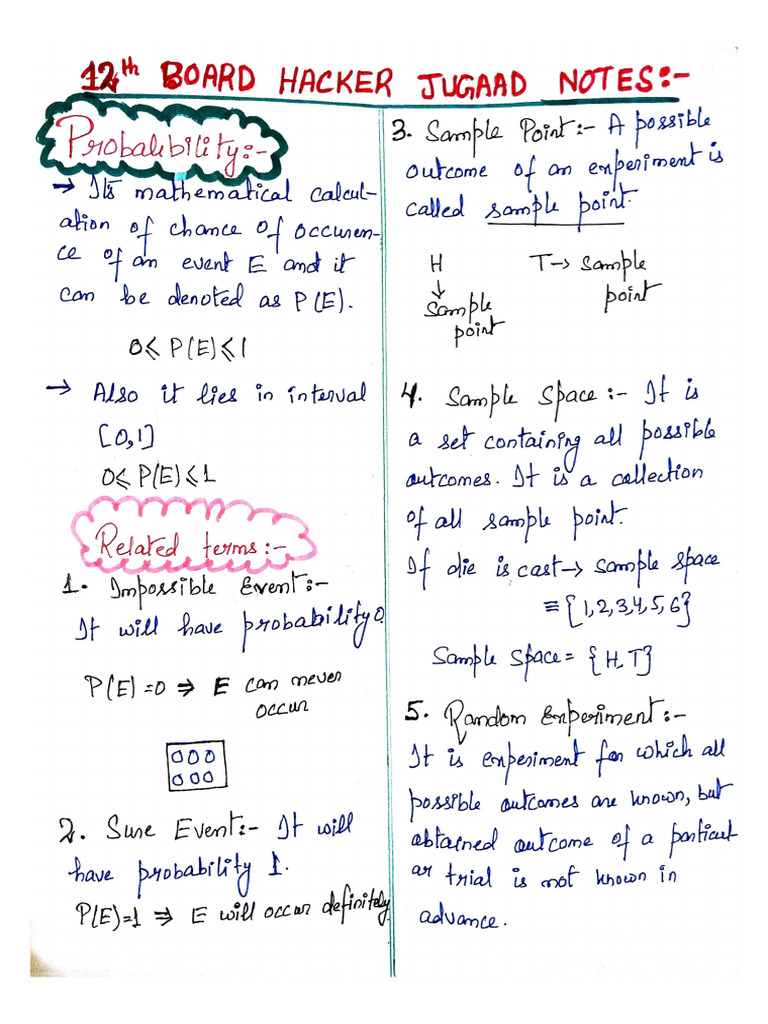 12th BOARD HACKER JUGAAD NOTES:-
Probability:-
→ Its mathematical calcul-
ation of chance of occuren-
ce of an event E and it
can be denoted as P(E).
0≤ P(E)≤1
→ Also it lies in interval
[0,1]
0≤ P(E)≤1
Related terms:-
1. Impossible Event:-
It will have probability 0.
P(E)=0 ⇒ E can never
occur
2. Sure Event:- It will
have probability 1.
P(E)=1 ⇒ E will occur definitely
3. Sample Point:- A possible
outcome of an experiment is
called sample point.
H T→ Sample
↓ point
Sample
point
4. Sample Space:- It is
a set containing all possible
outcomes. It is a collection
of all sample point.
If die is cast→ sample space
≡{1,2,3,4,5,6}
Sample Space = {H,T}
5. Random Experiment:-
It is experiment for which all
possible outcomes are known, but
obtained outcome of a particul
ar trial is not known in
advance.